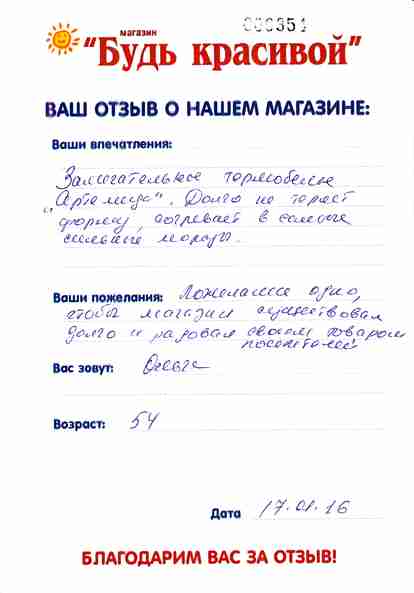 000354
магазин
"Будь красивой"
ВАШ ОТЗЫВ О НАШЕМ МАГАЗИНЕ:
Ваши впечатления:
Замечательное термобелье
"Артемида". Долго не теряет
форму, согревает в самые
сильные морозы.
Ваши пожелания: Пожелание одно,
чтобы магазин существовал
долго и радовал своим товаром
посетителей
Вас зовут: Ольга
Возраст: 54
Дата 17.01.16
БЛАГОДАРИМ ВАС ЗА ОТЗЫВ!